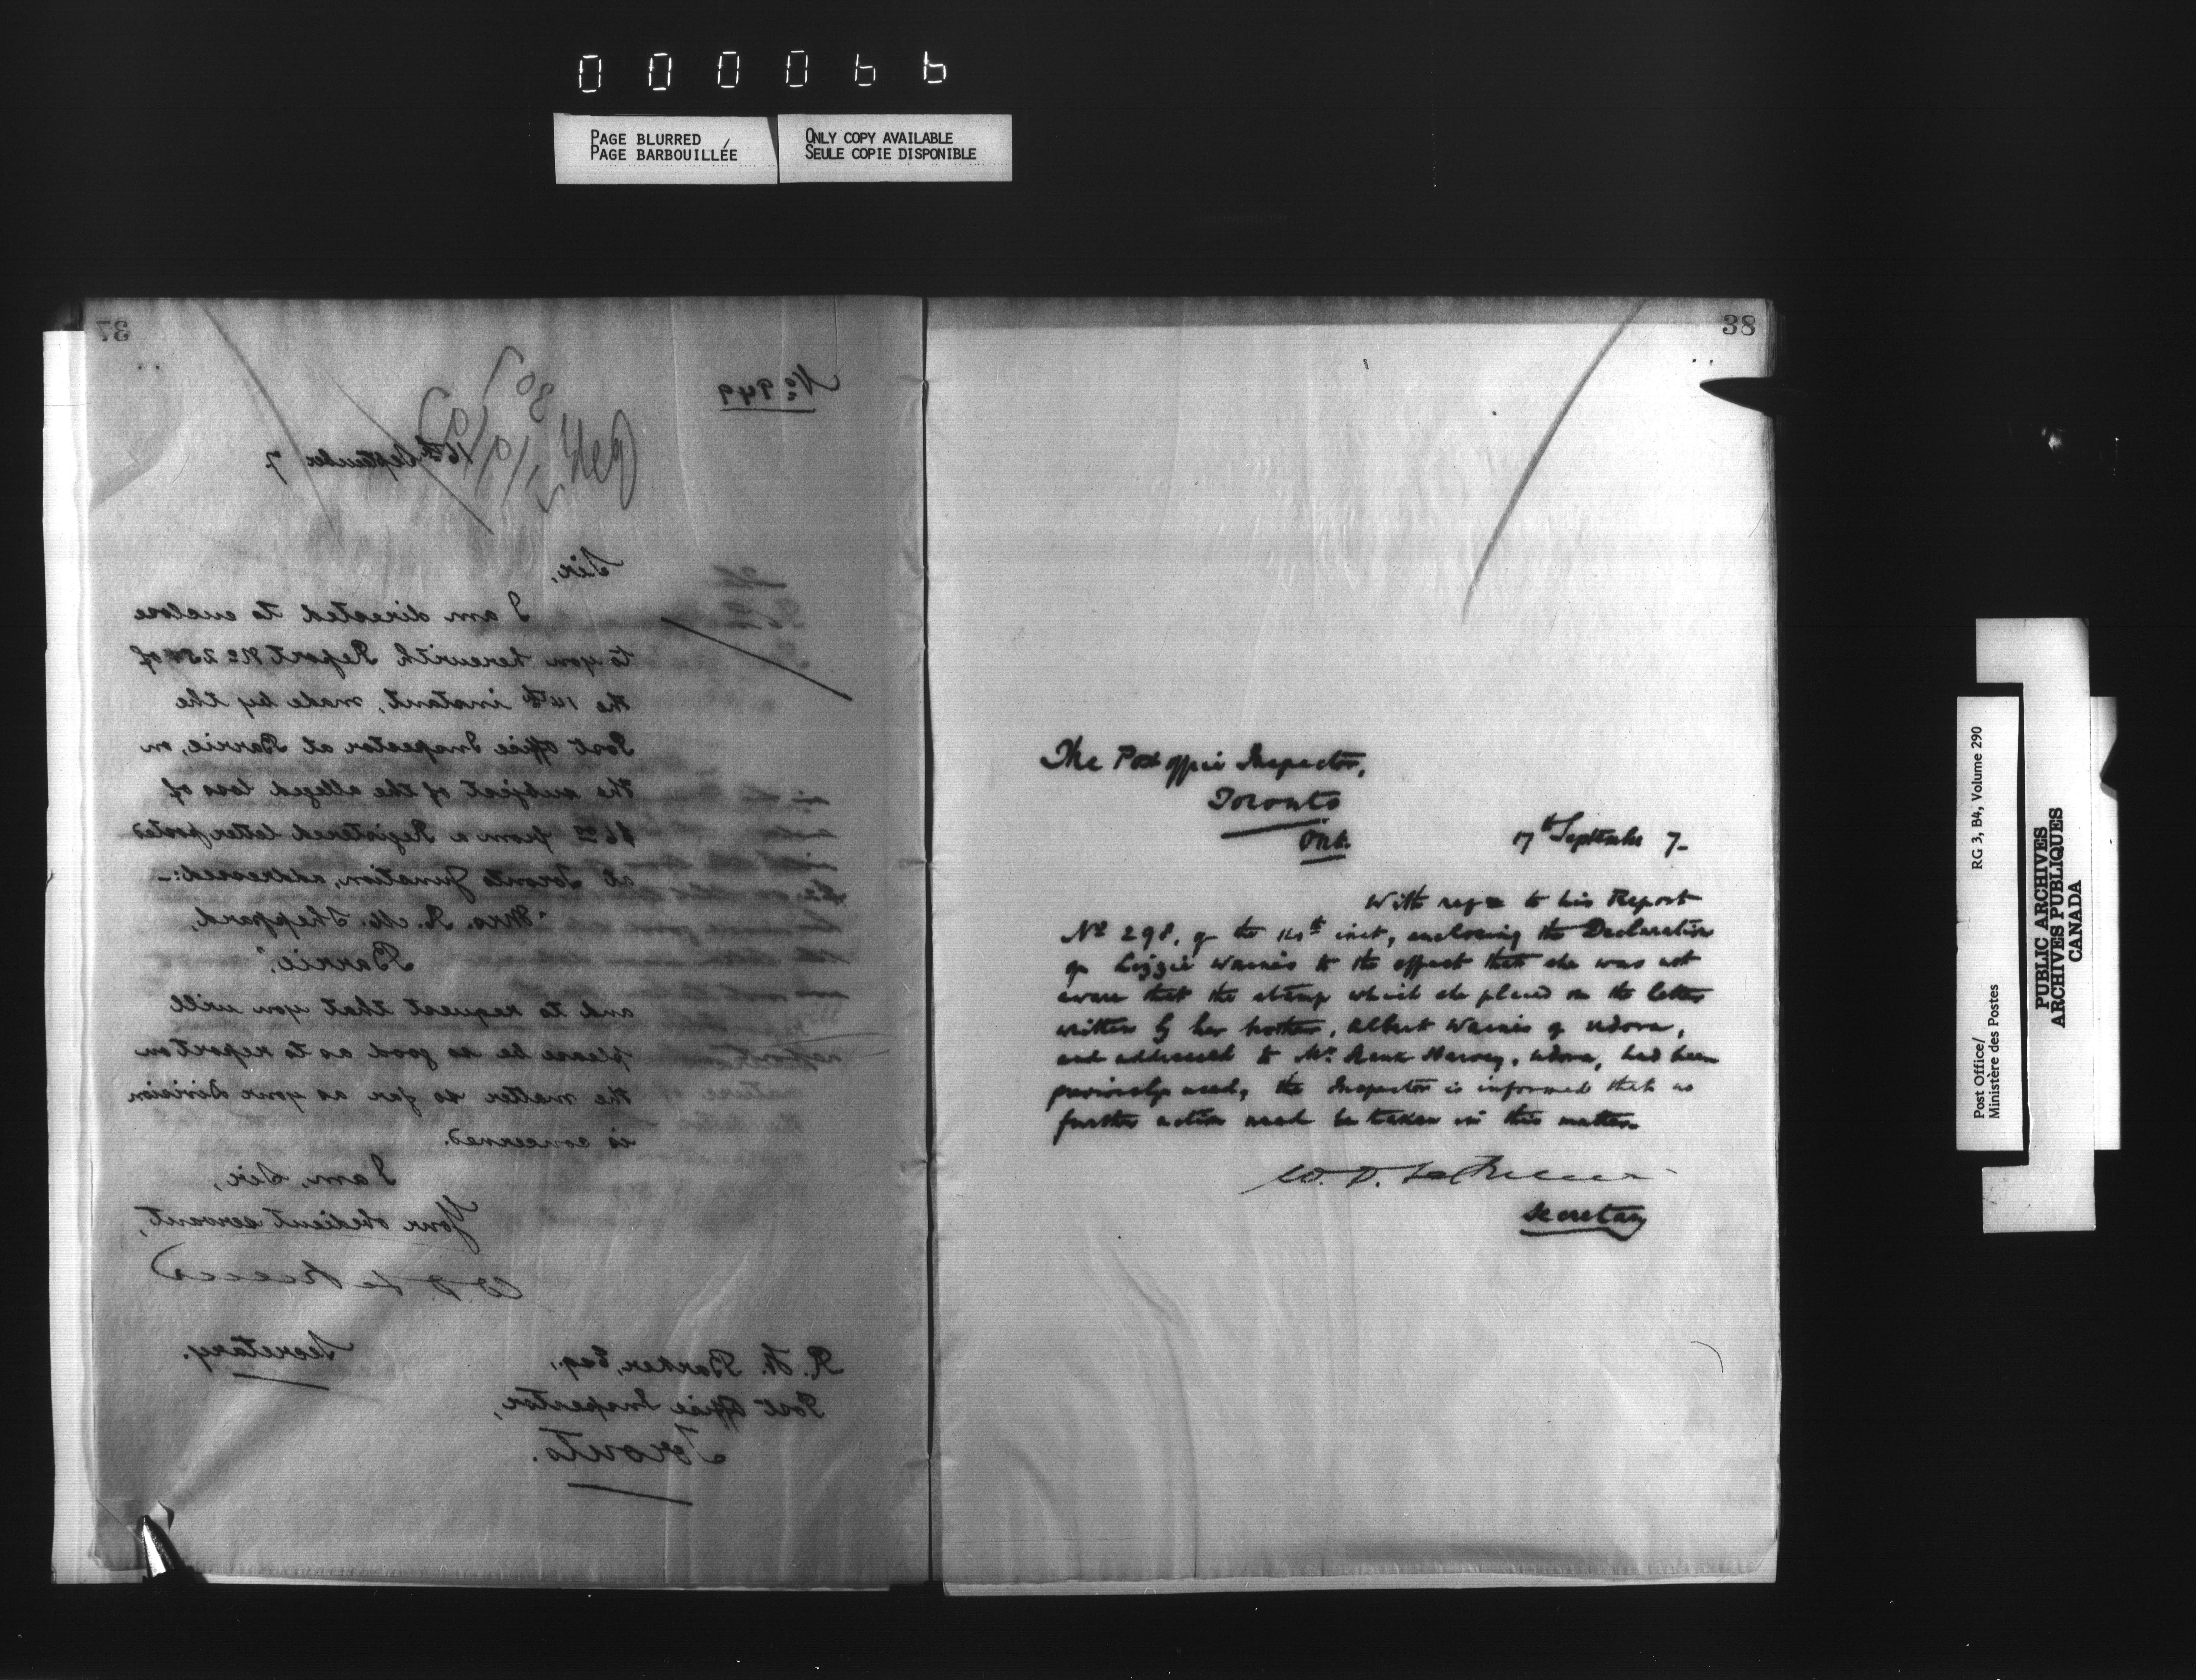 000066
PAGE BLURRED
PAGE BARBOUILLÉE
ONLY COPY AVAILABLE
SEULE COPIE DISPONIBLE
37
No 949
16th September 7
Sir,
I am directed to enclose
to you herewith Report No of
the 14th instant, made by the
Post Office Inspector at Barrie, on,
the subject of the alleged loss of
$6.00 from a Registered letter posted
at Toronto Junction, addressed:-
"Mrs. R. M. Sheppard,
Barrie,"
and to request that you will
please be so good as to report on
the matter so far as your division
is concerned.
I am, Sir,
Your obedient servant,
Secretary.
R. H. Barker, Esq.,
Post Office Inspector,
Toronto.
38
The Post office Inspector,
Toronto
Ont.
17th September 7-
With regd to his Report
No 298, of the 14th inst, enclosing the Declaration
of Lizzie Warnis to the effect that she was not
aware that the stamp which she placed on the letter
written by her brother, Albert Warnis of Udora,
and addressed to Mr. Harvey, Udora, had been
previously used, the Inspector is informed that no
further action need be taken in this matter.
Secretary
Post Office/
Ministère des Postes
RG 3, B4, Volume 290
PUBLIC ARCHIVES
ARCHIVES PUBLIQUES
CANADA